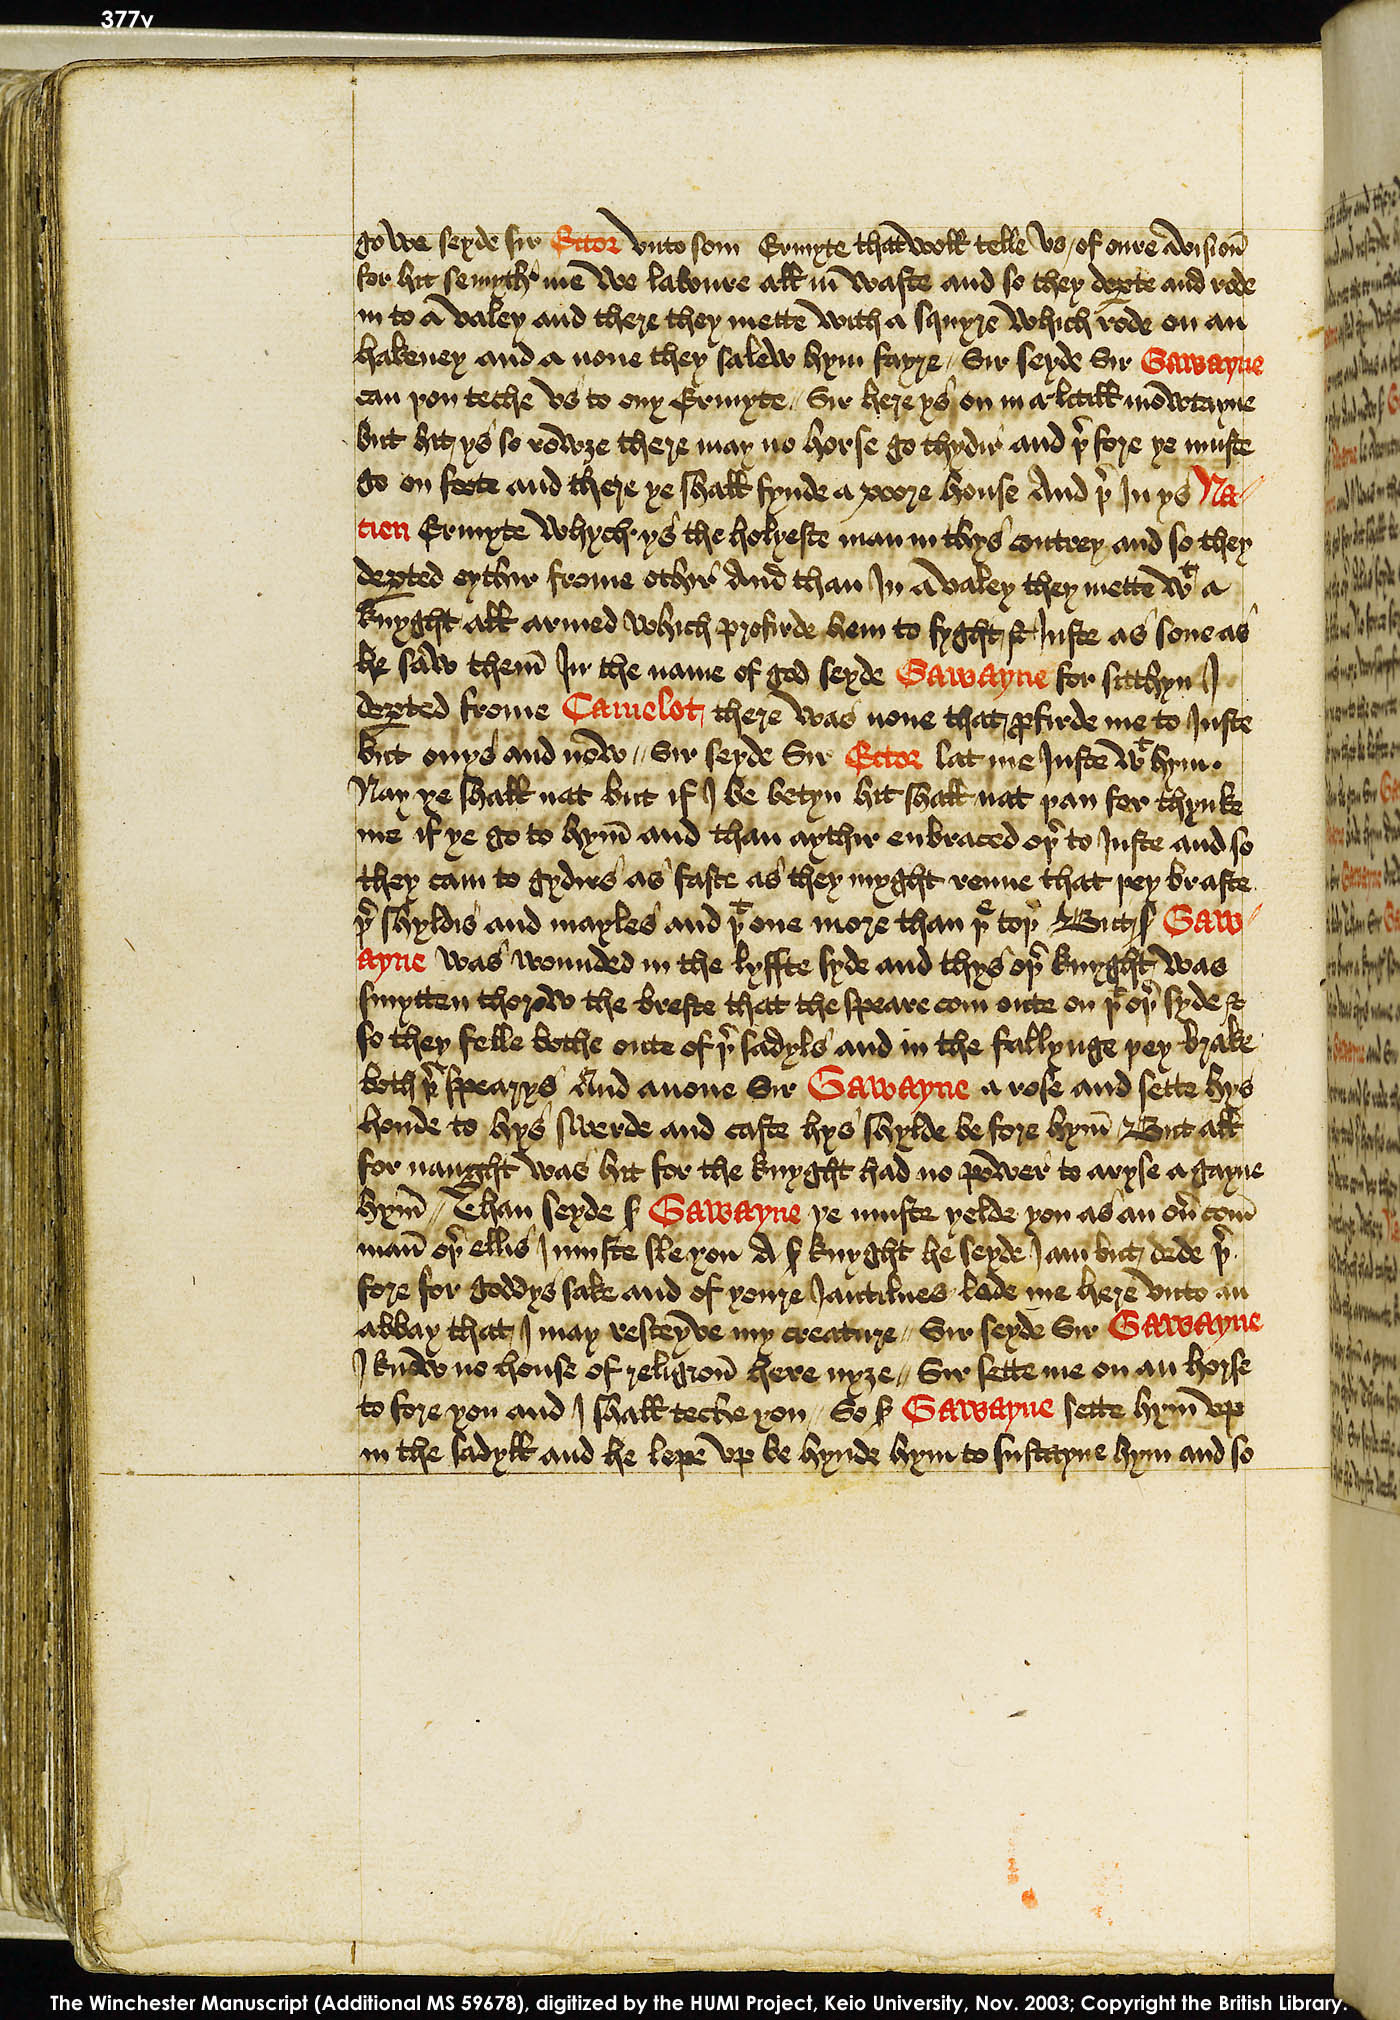 377v
go we seyde sir Ector vnto som Ermyte that woll telle vs of oure Avision̄
for hit semyth me we laboure all in waste and so they deꝑte and rode
in to A valey and there they mette with a squyre which rode on an
hakeney and a none they salew hym fayre // Sir seyde Sir Gawayne
can you teche vs to ony Ermyte // Sir here ys on in a litill mowntayne
but hit ys so rowȝe there may no horse go thydir and þ͛ fore ye muste
go on foote and there ye shall fynde a poore house And þ͛ In ys Na//
cien Ermyte whych ys the holyeste man in thys contrey and so they
deꝑted eythir frome othir And than In A valey they mette wᵗ a
knyght all armed which profirde hem to fyght & Iuste as sone as
he saw them̄ In the name of god seyde Gawayne for sitthyn I
deꝑted frome Camelot there was none that ꝓfirde me to Iuste
but onys and now // Sir seyde Sir Ector lat me Iuste wᵗ hym .
Nay ye shall nat but if I be betyn hit shall nat þan for thynke
me if ye go to hym̄ and than aythir enbraced oþ͛ to Iuste and so
they cam to gydirs as faste as they myght renne that þey braste
þ͛ shyldis and mayles and þᵗ one more than þᵉ toþ͛ But ẜ Gaw//
ayne was wounded in the lyffte syde and thys oþ͛ knyght was
smytten thorow the breste that the speare com oute on þᵉ oþ͛ syde &
so they felle bothe oute of þ͛ sadyls and in the fallynge þey brake
both þ͛ spearys And anone Sir Gawayne a rose and sette hys
honde to hys swerde and caste hys shylde be fore hym̄ But all
for naught was hit for the knyght had no power to aryse a gayne
hym̄ // Than seyde ẜ Gawayne ye muste yelde you as an ou͛com̄
man̄ oþ͛ ellis I muste sle you A ẜ knyght he seyde I am but dede þ͛
fore for goddys sake and of youre Iantilnes lede me here vnto an
abbay that I may resceyve my creature // Sir seyde Sir Gawayne
I know no house of religion̄ here nyȝe // Sir sette me on an horse
to fore you and I shall teche you // So ẜ Gawayne sette hym̄ vp
in the sadyll and he lepe vp be hynde hym to sustayne hym and so
The Winchester Manuscript (Additional MS 59678), digitized by the HUMI Project, Keio University, Nov. 2003; Copyright the British Library.